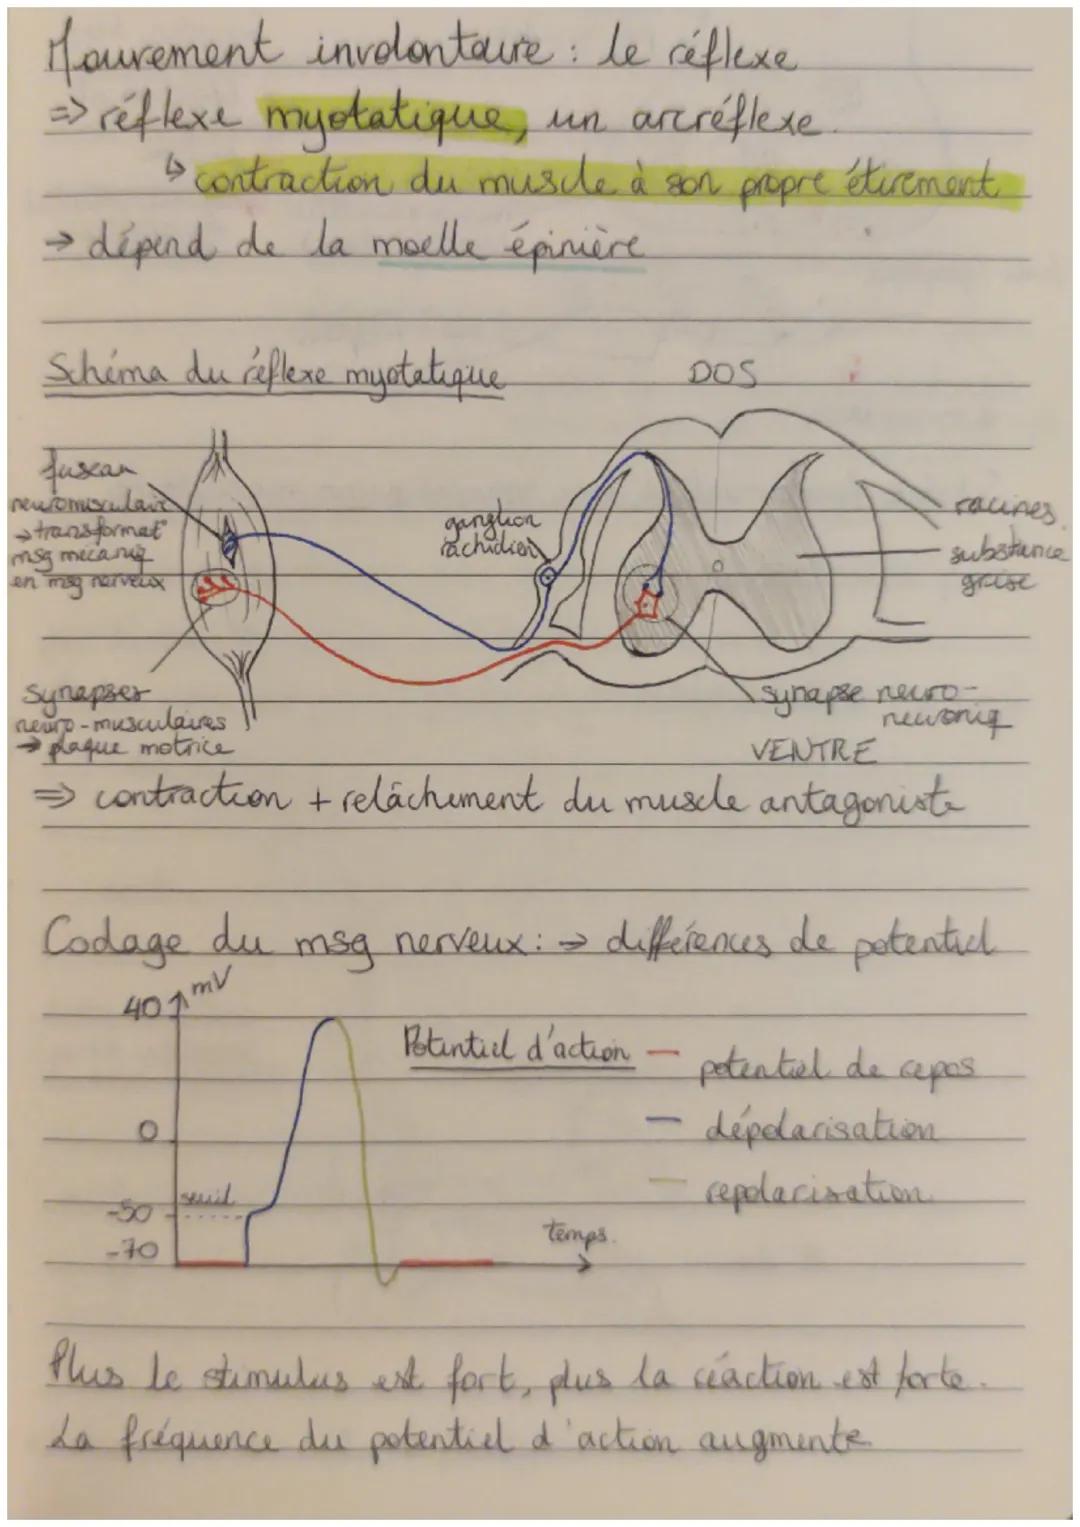 Mouvement involontaire : le réflexe
=> réflexe myotatique, un arcréflexe.
↳ contraction du muscle à son propre étirement
→ dépend de la moelle épinière
Schéma du réflexe myotatique
DOS
fuseau
neuromusculaire
→ transformat°
msg mécaniq
en msg nerveux
ganglion
rachidien
racines
substance
grise
synapses
neuro-musculaires
→ plaque motrice
synapse neuro-
neuroniq
VENTRE
=> contraction + relâchement du muscle antagoniste
Codage du msg nerveux : → différences de potentiel
mV
40
0
-50
-70
seuil
temps.
Potentiel d'action
— potentiel de repos
— dépolarisation
— repolarisation
Plus le stimulus est fort, plus la réaction est forte.
La fréquence du potentiel d'action augmente